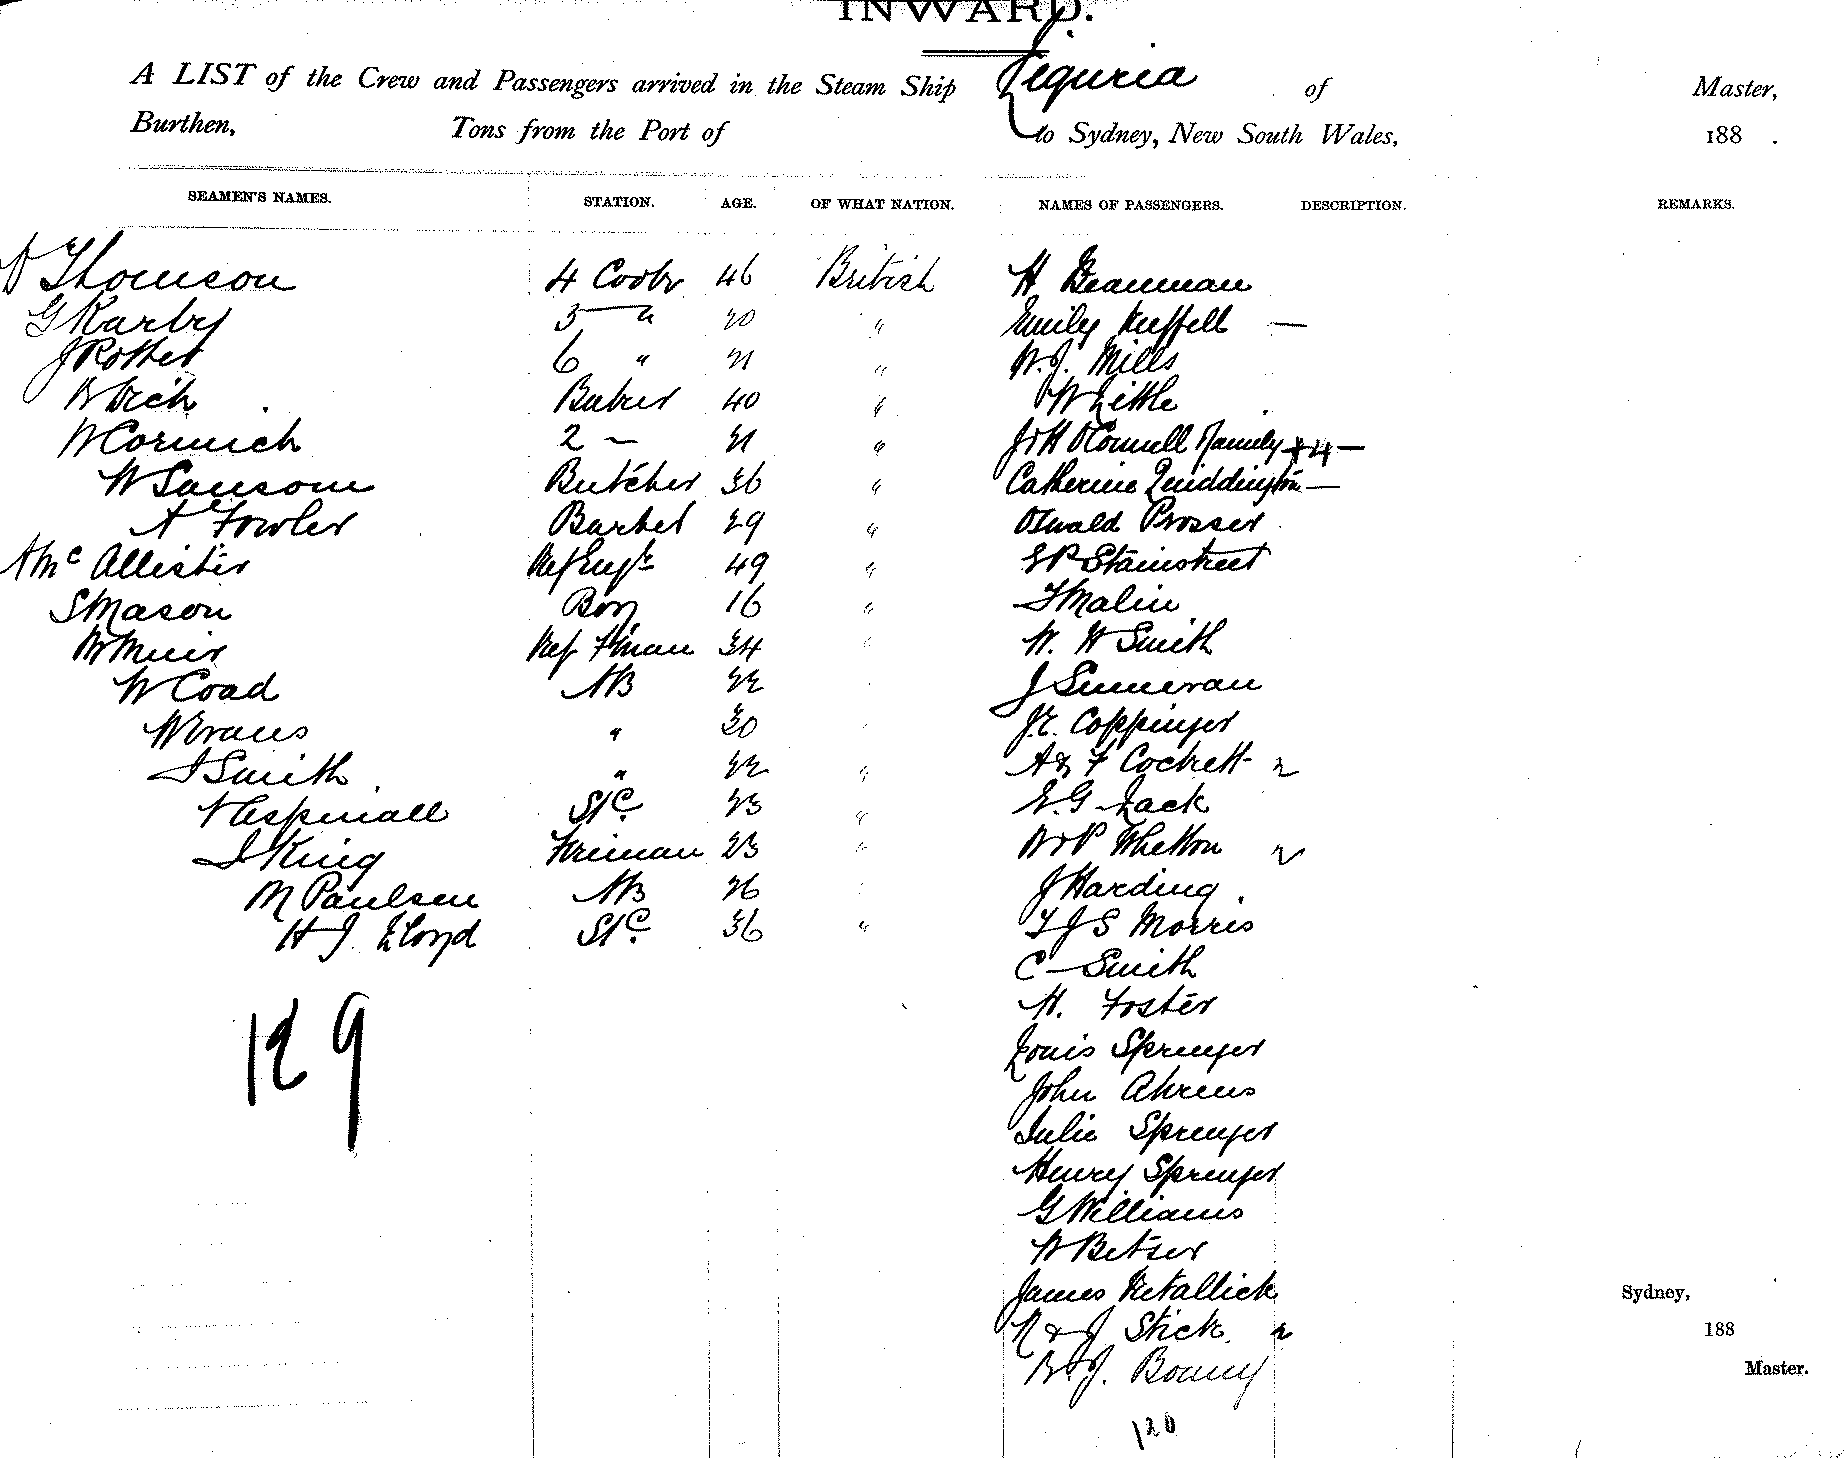 INWARD.
A LIST of the Crew and Passengers arrived in the Steam Ship Liguria of Master,
Burthen, Tons from the Port of to Sydney, New South Wales, 188 .
SEAMEN'S NAMES. STATION. AGE. OF WHAT NATION. NAMES OF PASSENGERS. DESCRIPTION. REMARKS.
Thomson 4 Cook 46 British H Beauman
G Karby 5 " 20 " Emily Kuffell —
J Rotter 6 " 21 " W.J. Mills
Baker 40 " W Little
W Cormick 2 — 21 " J & H O'Connell Family +4 —
W Sansom Butcher 36 " Catherine Quiddington —
A Fowler Barber 29 " Oswald Prosser
A McAllister Ref Engr 49 " Stainstreet
S Mason Boy 16 " F Malin
W Muir Ref F'man 34 " W. H Smith
W Coad AB 22 J
W Evans " 30 J.E. Coppinger
J Smith " 22 " A & F Cockrett 2
Aspinall St C. 23 " E.G. Jack
J King Fireman 23 " W & P Whetton 2
M Paulsen AB 26 J Harding
H J Lloyd St C. 36 " T J S Morris
C Smith
H. Foster
Louis Sprenger
John Ahrens
Julie Sprenger
Henry Sprenger
G Williams
W Betser
James Retallick
N & J Stick 2
W.J. Bonny
129
120
Sydney,
188
Master.